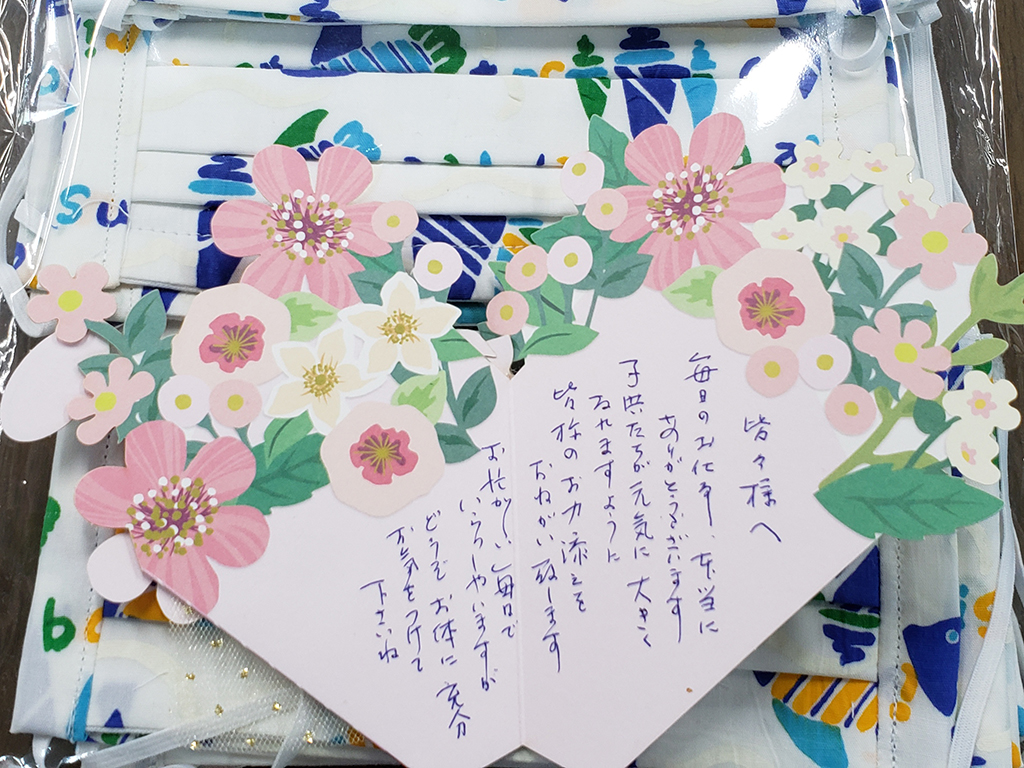 皆々様へ
毎日のお仕事、本当に
ありがとうございます
子供たちが元気に大きく
なれますように
皆様のお力添えを
おねがい致します
お忙しい毎日で
いらっしゃいますが
どうぞお体に充分
お気をつけて
下さいね
b